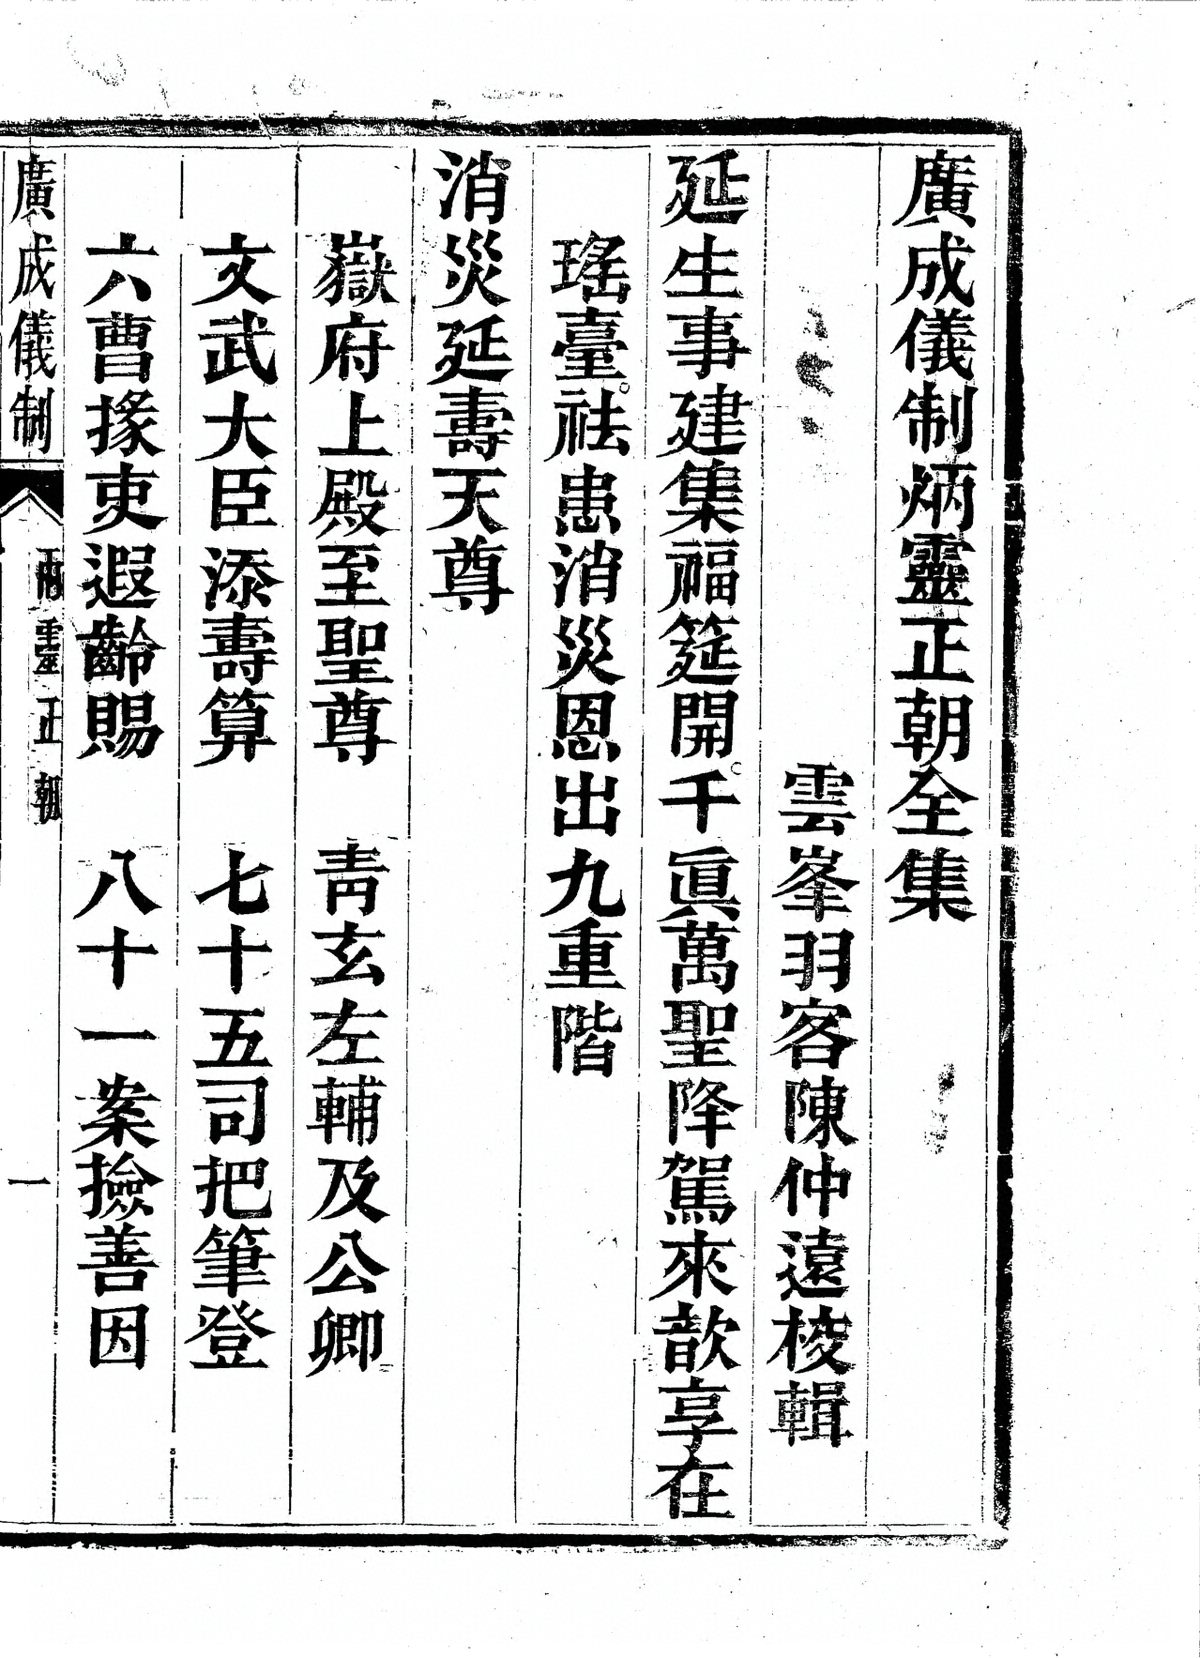 廣成儀制炳靈正朝全集
雲峯羽客陳仲遠校輯
延生事建集福筵開千眞萬聖降駕來歆享在
瑤臺祛患消災恩出九重階
消災延壽天尊
嶽府上殿至聖尊　青玄左輔及公卿
文武大臣添壽算　七十五司把筆登
六曹掾吏遐齡賜　八十一案撿善因
廣成儀制　炳靈正朝　一